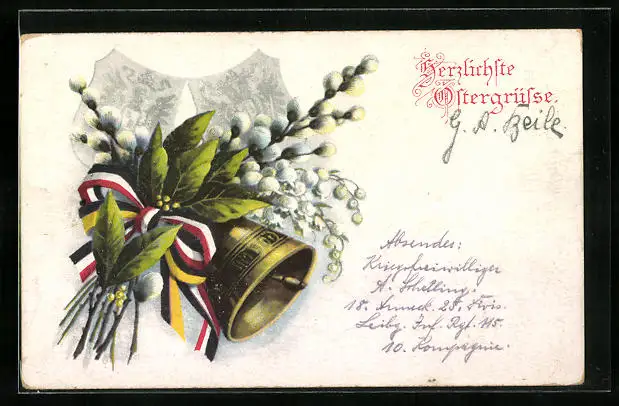 Herzlichste
Ostergrüsse.
G. A. Zeile.
Absender:
Kriegsfreiwilliger
A. Schelling.
18. Armeek. 25. Divis.
Leibg. Inf. Rgt. 115.
10. Kompagnie.